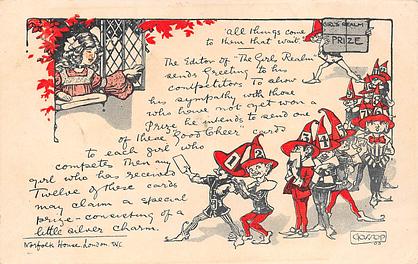 "All things come
to them that wait"
GIRL'S REALM
PRIZE
The Editor of "The Girls Realm"
sends Greeting to his
competitors to show
his sympathy with those
who have not yet won a
Prize he intends to send one
of these "Good Cheer" cards
to each girl who
competes. Then any
girl who has received
Twelve of these cards
may claim a special
prize - consisting of a
little silver charm.
Norfolk House. London. W.C.